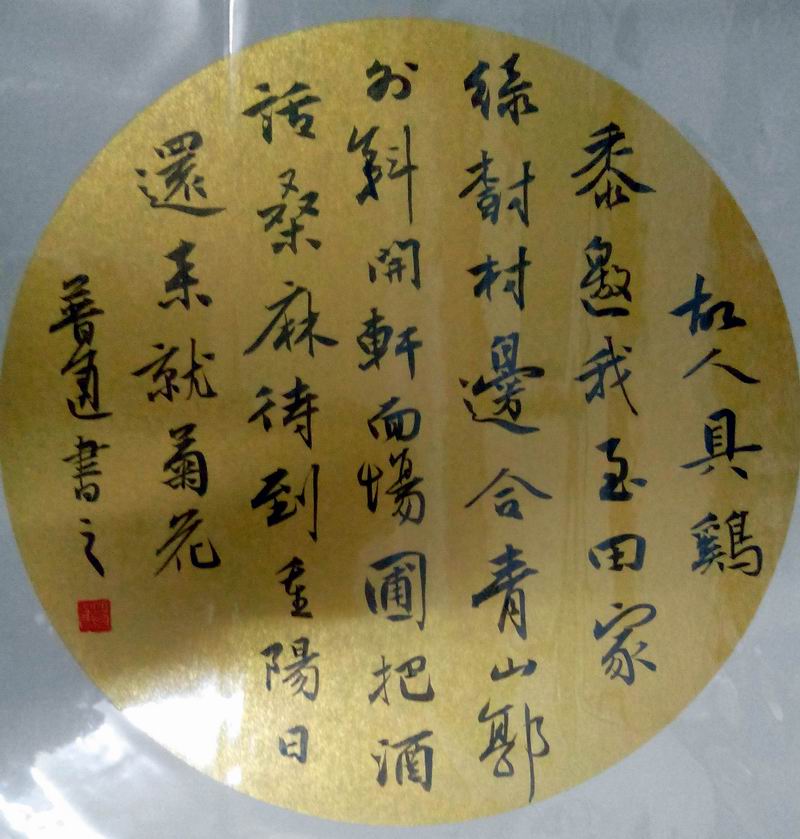 故人具鷄
黍邀我至田家
綠樹村邊合青山郭
外斜開軒面場圃把酒
話桑麻待到重陽日
還來就菊花
普書之